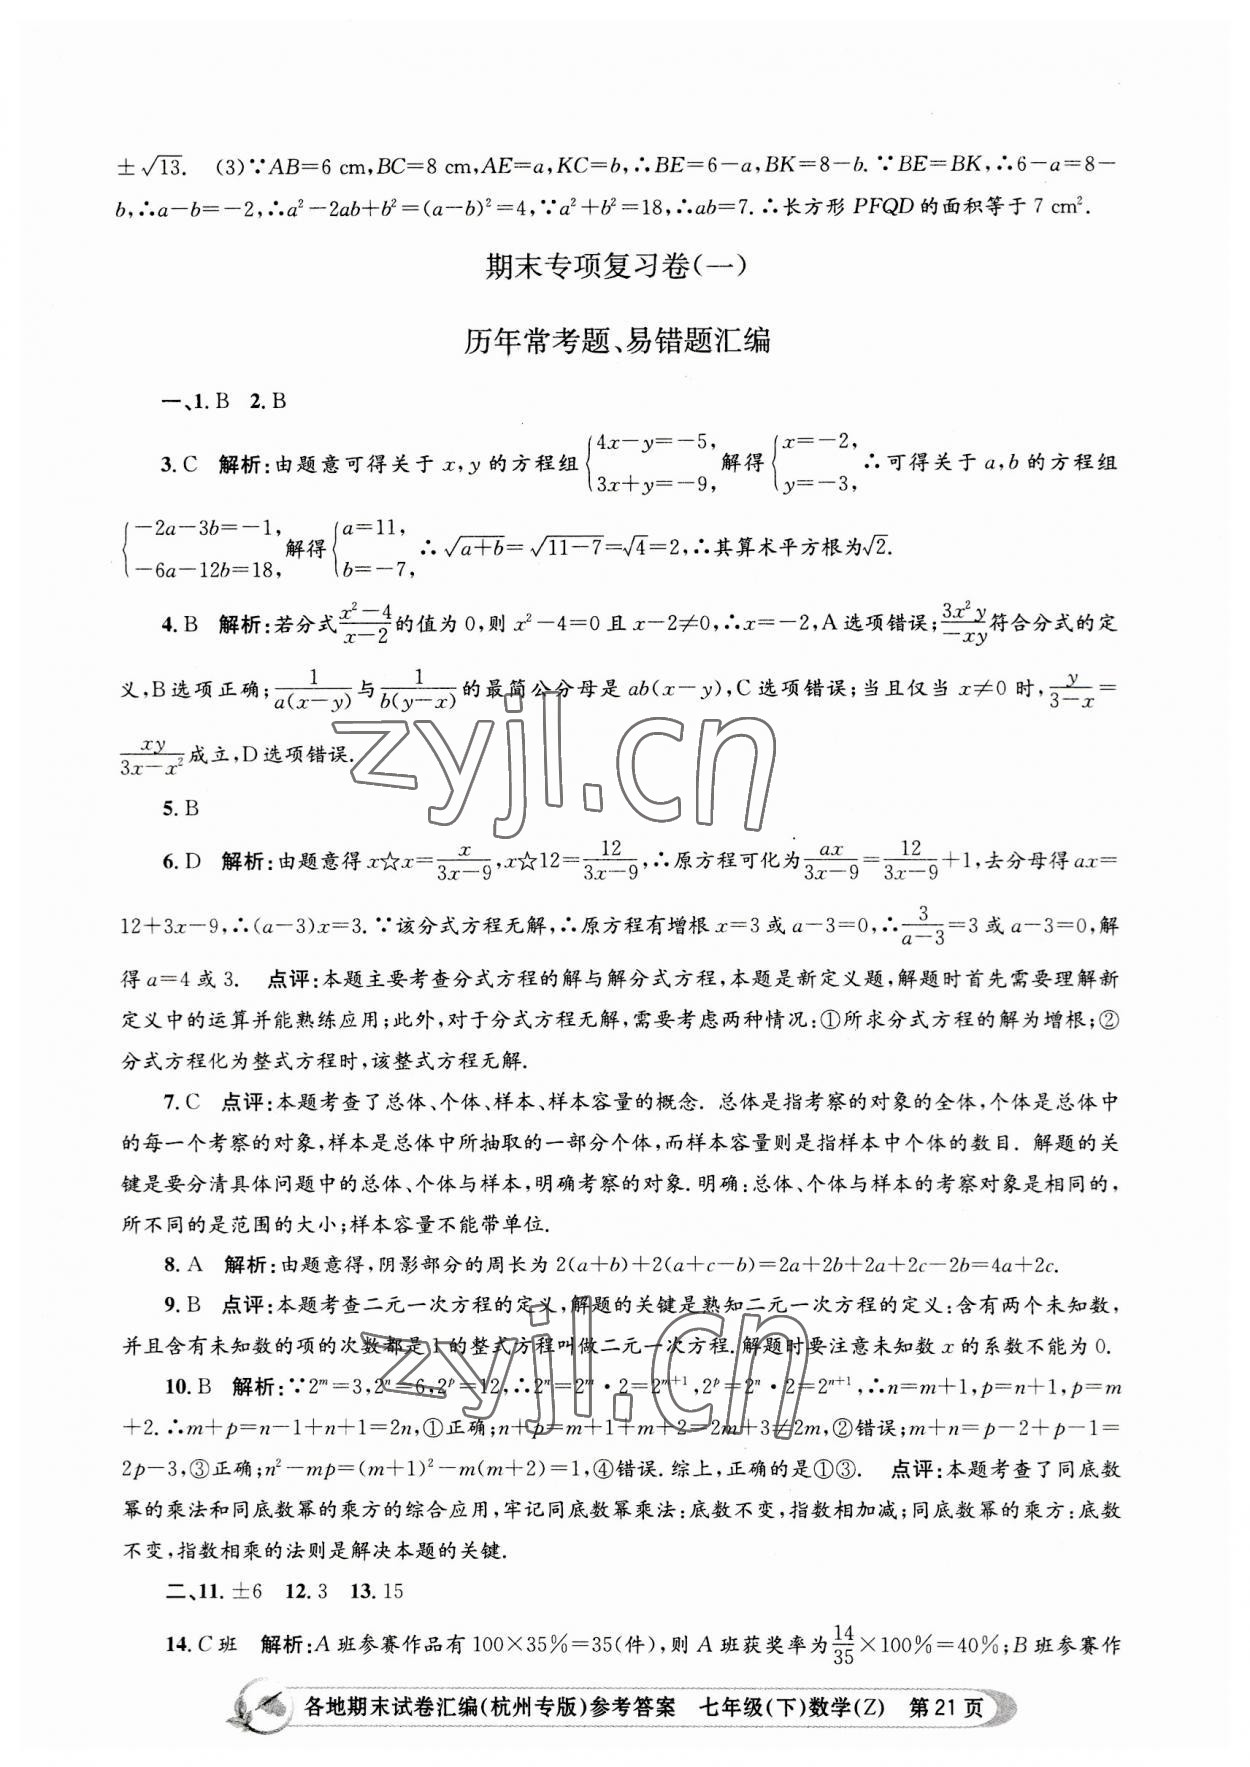 ±√13. (3)∵AB=6 cm,BC=8 cm,AE=a,KC=b,∴BE=6−a,BK=8−b.∵BE=BK,∴6−a=8−
b,∴a−b=−2,∴a²−2ab+b²=(a−b)²=4,∵a²+b²=18,∴ab=7.∴长方形 PFQD 的面积等于 7 cm².
期末专项复习卷(一)
历年常考题、易错题汇编
一、1. B 2. B
3. C 解析:由题意可得关于 x,y 的方程组{4x−y=−5, 3x+y=−9,解得{x=−2, y=−3,∴可得关于 a,b 的方程组
{−2a−3b=−1, −6a−12b=18,解得{a=11, b=−7,∴√(a+b)=√(11−7)=√4=2,∴其算术平方根为√2.
4. B 解析:若分式(x²−4)/(x−2)的值为 0,则 x²−4=0 且 x−2≠0,∴x=−2,A 选项错误;3x²y/(−xy)符合分式的定
义,B 选项正确;1/(a(x−y))与1/(b(y−x))的最简公分母是 ab(x−y),C 选项错误;当且仅当 x≠0 时,y/(3−x)=
xy/(3x−x²)成立,D 选项错误.
5. B
6. D 解析:由题意得 x☆x=x/(3x−9),x☆12=12/(3x−9),∴原方程可化为ax/(3x−9)=12/(3x−9)+1,去分母得 ax=
12+3x−9,∴(a−3)x=3.∵该分式方程无解,∴原方程有增根 x=3 或 a−3=0,∴3/(a−3)=3 或 a−3=0,解
得 a=4 或 3. 点评:本题主要考查分式方程的解与解分式方程,本题是新定义题,解题时首先需要理解新
定义中的运算并能熟练应用;此外,对于分式方程无解,需要考虑两种情况:①所求分式方程的解为增根;②
分式方程化为整式方程时,该整式方程无解.
7. C 点评:本题考查了总体、个体、样本、样本容量的概念. 总体是指考察的对象的全体,个体是总体中
的每一个考察的对象,样本是总体中所抽取的一部分个体,而样本容量则是指样本中个体的数目. 解题的关
键是要分清具体问题中的总体、个体与样本,明确考察的对象.明确:总体、个体与样本的考察对象是相同的,
所不同的是范围的大小;样本容量不能带单位.
8. A 解析:由题意得,阴影部分的周长为 2(a+b)+2(a+c−b)=2a+2b+2a+2c−2b=4a+2c.
9. B 点评:本题考查二元一次方程的定义,解题的关键是熟知二元一次方程的定义:含有两个未知数,
并且含有未知数的项的次数都是 1 的整式方程叫做二元一次方程.解题时要注意未知数 x 的系数不能为 0.
10. B 解析:∵2ᵐ=3,2ⁿ=6,2ᵖ=12,∴2ⁿ=2ᵐ·2=2ᵐ⁺¹,2ᵖ=2ⁿ·2=2ⁿ⁺¹,∴n=m+1,p=n+1,p=m
+2.∴m+p=n−1+n+1=2n,①正确;n+p=m+1+m+2=2m+3≠2m,②错误;m+n=p−2+p−1=
2p−3,③正确;n²−mp=(m+1)²−m(m+2)=1,④错误.综上,正确的是①③. 点评:本题考查了同底数
幂的乘法和同底数幂的乘方的综合应用,牢记同底数幂乘法:底数不变,指数相加减;同底数幂的乘方:底数
不变,指数相乘的法则是解决本题的关键.
二、11. ±6 12. 3 13. 15
14. C 班 解析:A 班参赛作品有 100×35%=35(件),则 A 班获奖率为14/35×100%=40%;B 班参赛作
各地期末试卷汇编(杭州专版)参考答案 七年级(下)数学(Z) 第 21 页
zyjl.cn
zyjl.cn